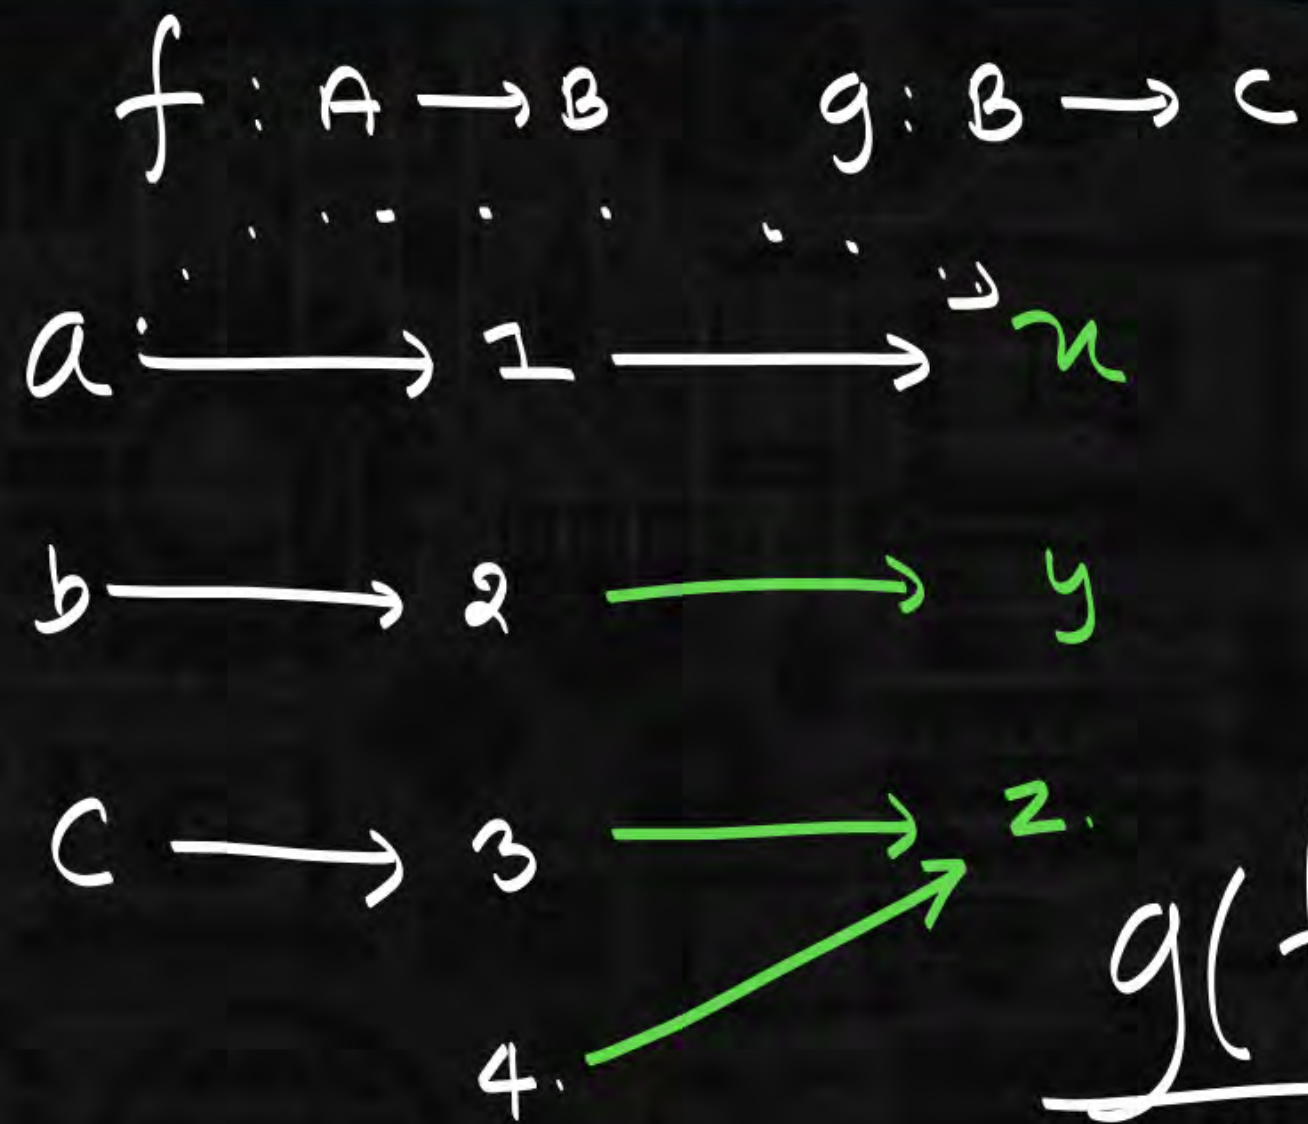 f : A → B g : B → C
a → 1 → x
b → 2 → y
C → 3 → z.
4.
g(